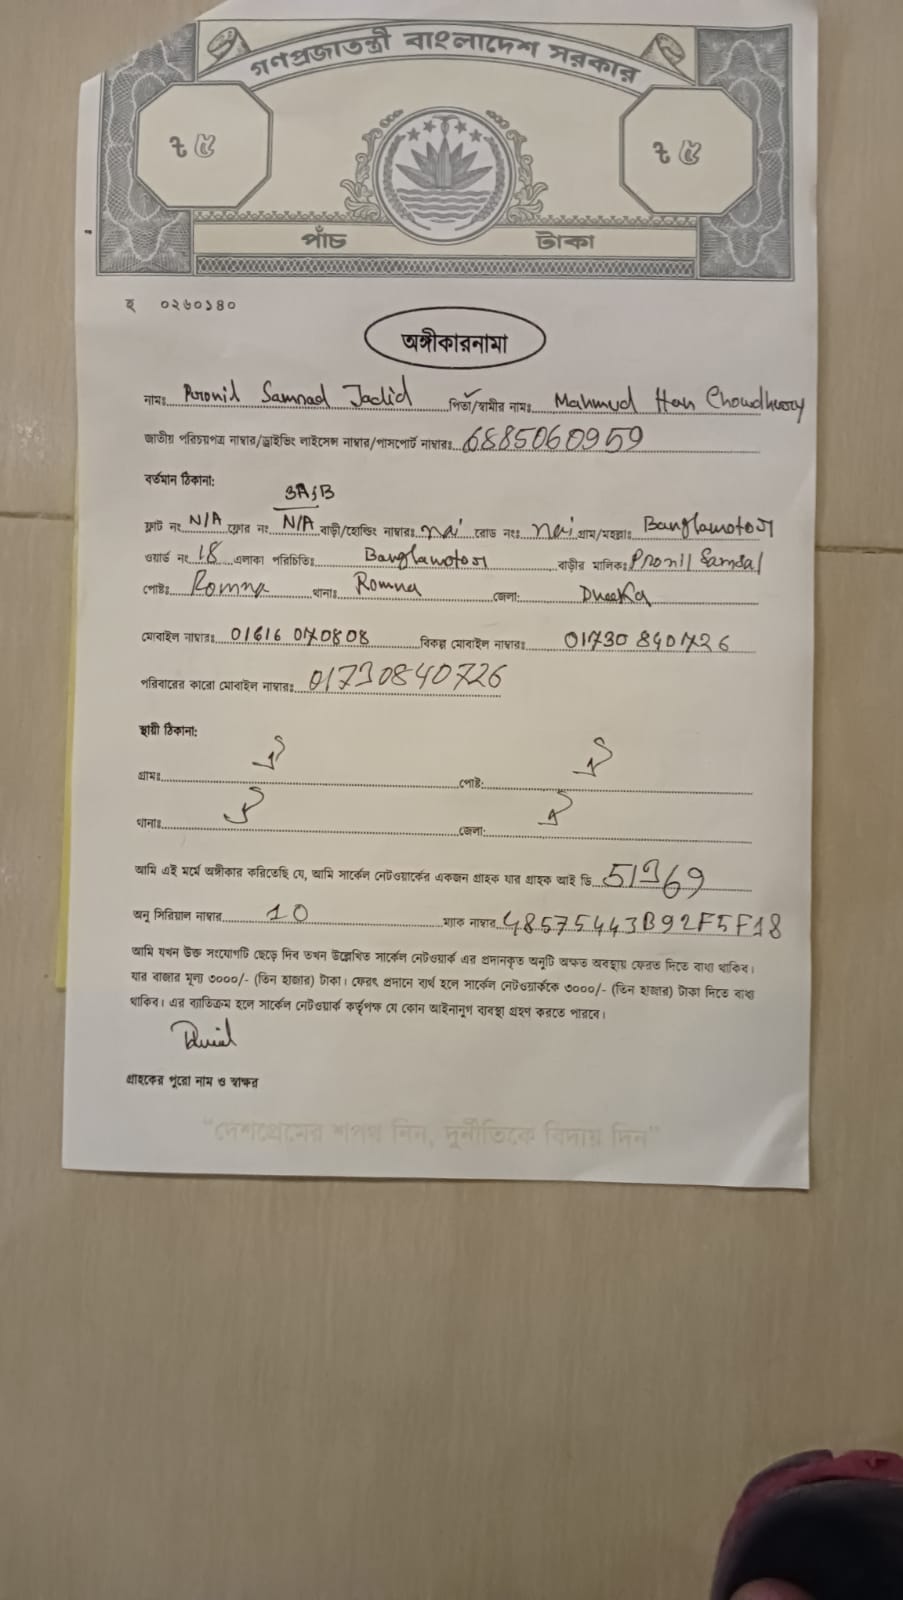 গণপ্রজাতন্ত্রী বাংলাদেশ সরকার
৳ ৫ ৳ ৫
পাঁচ টাকা
হ ০২৬০১৪০
অঙ্গীকারনামা
নামঃ Pronil Samnad Jadid পিতা/স্বামীর নাম: Mahmud Han Chowdhury
জাতীয় পরিচয়পত্র নাম্বার/ড্রাইভিং লাইসেন্স নাম্বার/পাসপোর্ট নাম্বারঃ 6885060959
বর্তমান ঠিকানা:
3A,B
ফ্লাট নং N/A ফ্লোর নং N/A বাড়ী/হোল্ডিং নাম্বারঃ nai রোড নংঃ nai গ্রাম/মহল্লাঃ Banglamotor
ওয়ার্ড নং 18 এলাকা পরিচিতিঃ Banglamotor বাড়ীর মালিকঃ Pronil Samdal
পোষ্টঃ Romna থানাঃ Romna জেলা: Dhaka
মোবাইল নাম্বারঃ 01616 070808 বিকল্প মোবাইল নাম্বারঃ 01730 840726
পরিবারের কারো মোবাইল নাম্বারঃ 01730840726
স্থায়ী ঠিকানা:
গ্রামঃ ঐ পোষ্ট: ঐ
থানাঃ ঐ জেলা: ঐ
আমি এই মর্মে অঙ্গীকার করিতেছি যে, আমি সার্কেল নেটওয়ার্কের একজন গ্রাহক যার গ্রাহক আই ডি 51969
অনু সিরিয়াল নাম্বার 10 ম্যাক নাম্বার 48575443B92F5F18
আমি যখন উক্ত সংযোগটি ছেড়ে দিব তখন উল্লেখিত সার্কেল নেটওয়ার্ক এর প্রদানকৃত অনুটি অক্ষত অবস্থায় ফেরত দিতে বাধ্য থাকিব।
যার বাজার মূল্য ৩০০০/- (তিন হাজার) টাকা। ফেরৎ প্রদানে ব্যর্থ হলে সার্কেল নেটওয়ার্ককে ৩০০০/- (তিন হাজার) টাকা দিতে বাধ্য
থাকিব। এর ব্যতিক্রম হলে সার্কেল নেটওয়ার্ক কর্তৃপক্ষ যে কোন আইনানুগ ব্যবস্থা গ্রহণ করতে পারবে।
গ্রাহকের পুরো নাম ও স্বাক্ষর
"দেশপ্রেমের শপথ নিন, দুর্নীতিকে বিদায় দিন"